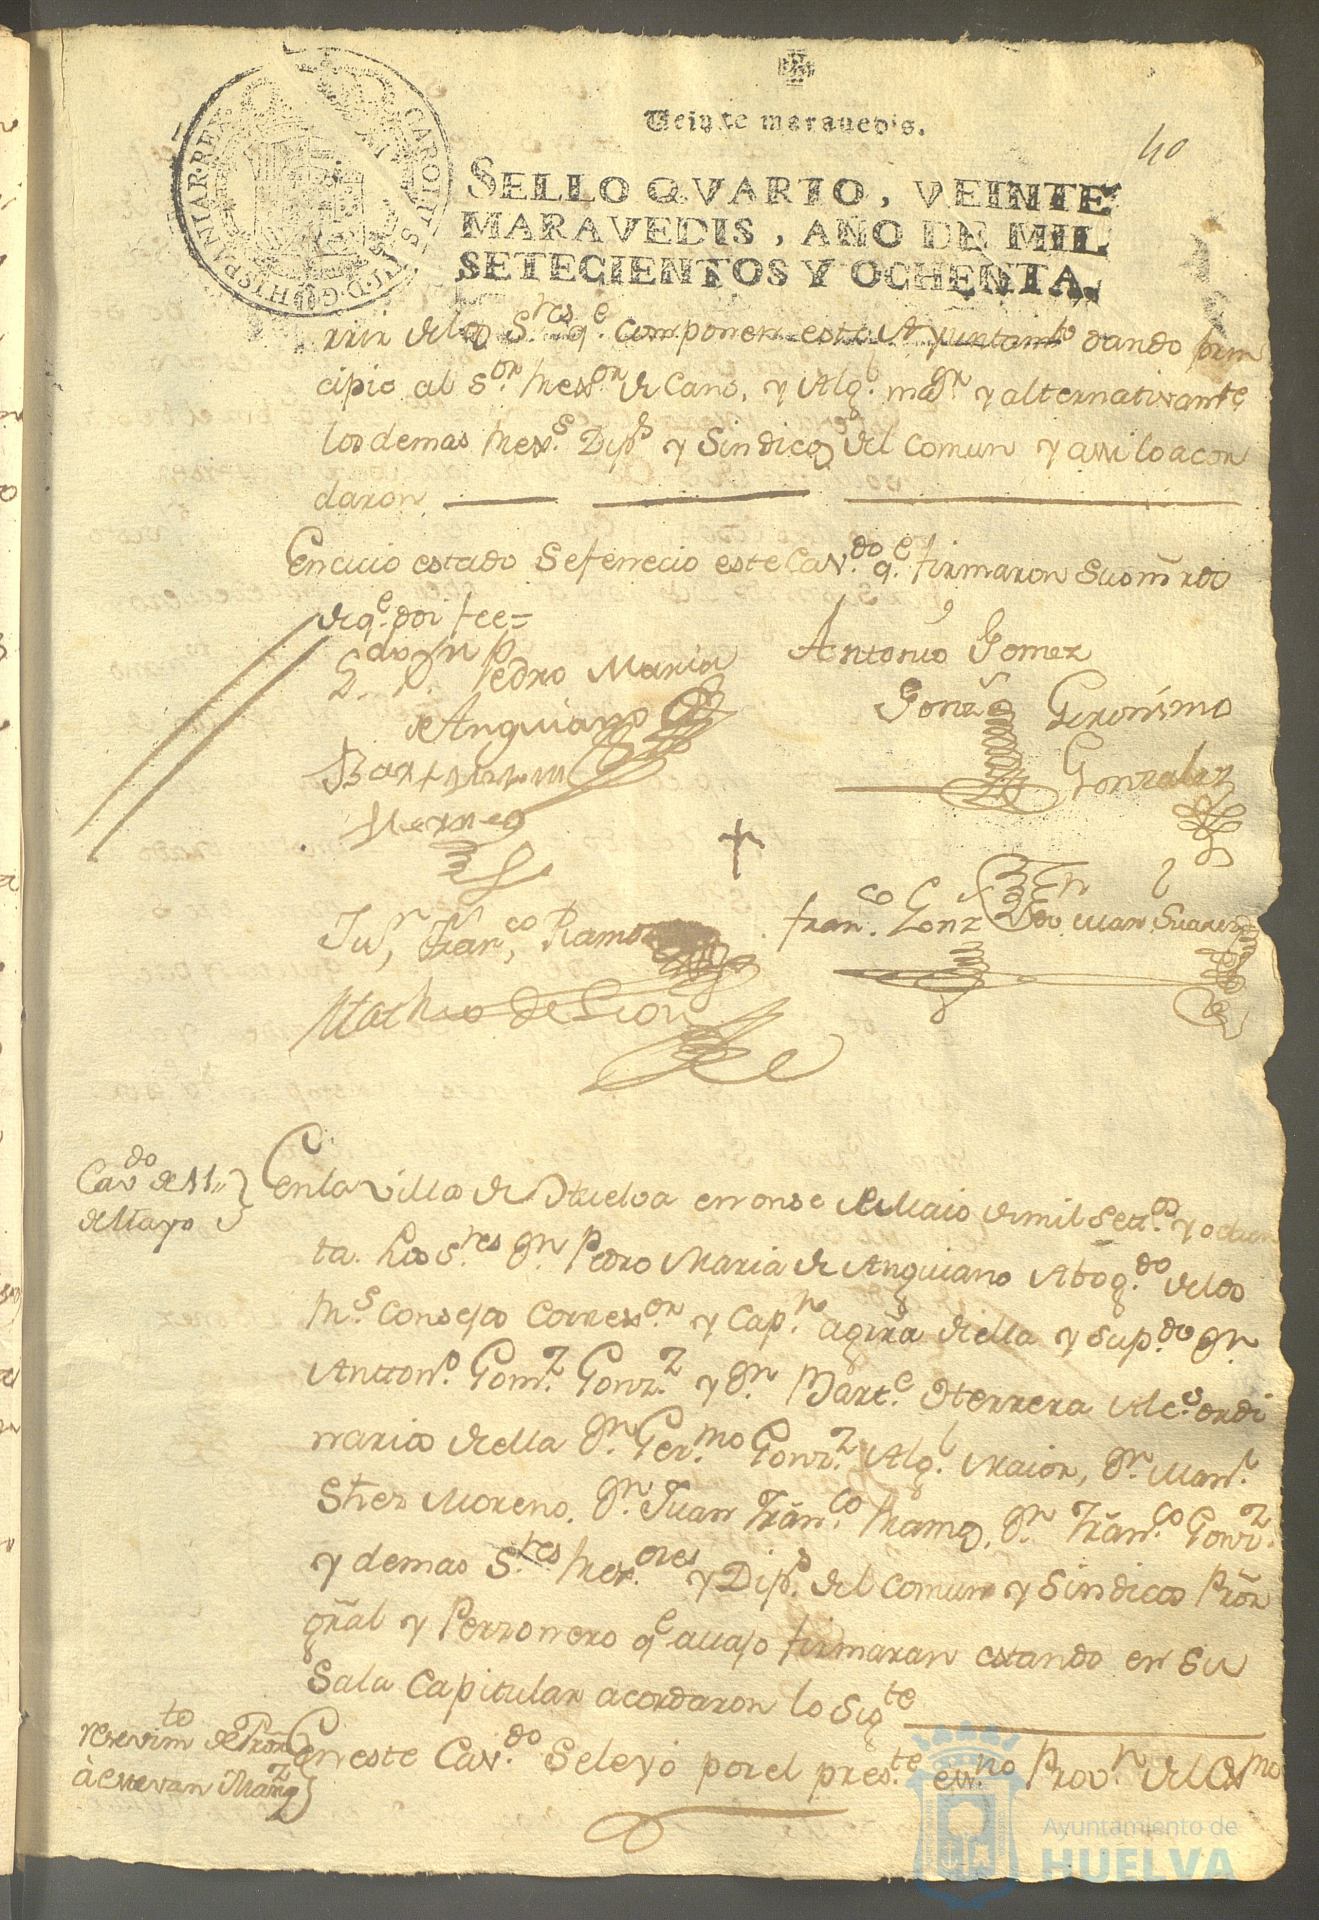 40
Veinte maravedis.
SELLO QVARTO, VEINTE
MARAVEDIS, AÑO DE MIL
SETECIENTOS Y OCHENTA.
CAROLUS III D G HISPANIAR REX
rrir de los S.res q.e componen este Ayuntam.to dando prin
cipio al S.or Rex.or de Cano, y Alg.l ma.or y alternativam.te
los demas Rex.s Dip.s y Sindicos del Comun y assi lo acor
daron
En cuio estado se fenecio este Cav.do q.e firmaron su
de q.e doi fee=
L.do D.n Pedro Maria
de Anguiano
Antonio Gomez
Gonz.z
Geronimo
Gonzalez
Bartholome
Herrera
Ju.n Fran.co Ramos
Fran.co Gonz.z
Juan Suarez
Matheo de Leon
Cav.do de 11,,
de Mayo
En la villa de Huelva en onse de Maio de mil sett.os y ochen
ta. Los S.res D.n Pedro Maria de Anguiano Abog.do de los
R.s Consejos Correx.or y Cap.n a gr̃a de ella y su p.do D.n
Antton.o Gom.z Gonz.z y D.n Bart.e Herrera Alc.s ordi
narios de ella D.n Ger.mo Gonz.z Alg.l Maior, D.n Man.l
Shez Moreno, D.n Juan Fran.co Ramos, D.n Fran.co Gonz.z
y demas S.res Rex.ores y Dip.s del Comun y Sindicos Pr̃or
gr̃al y Perzonero q.e avajo firmaran estando en su
Sala Capitular acordaron lo sig.te
resevim.to de Pr̃on
à Estevan Mar.z
En este Cav.do se leyó por el pres.te ess.no Prov.n del Ex.mo
Ayuntamiento de
HUELVA